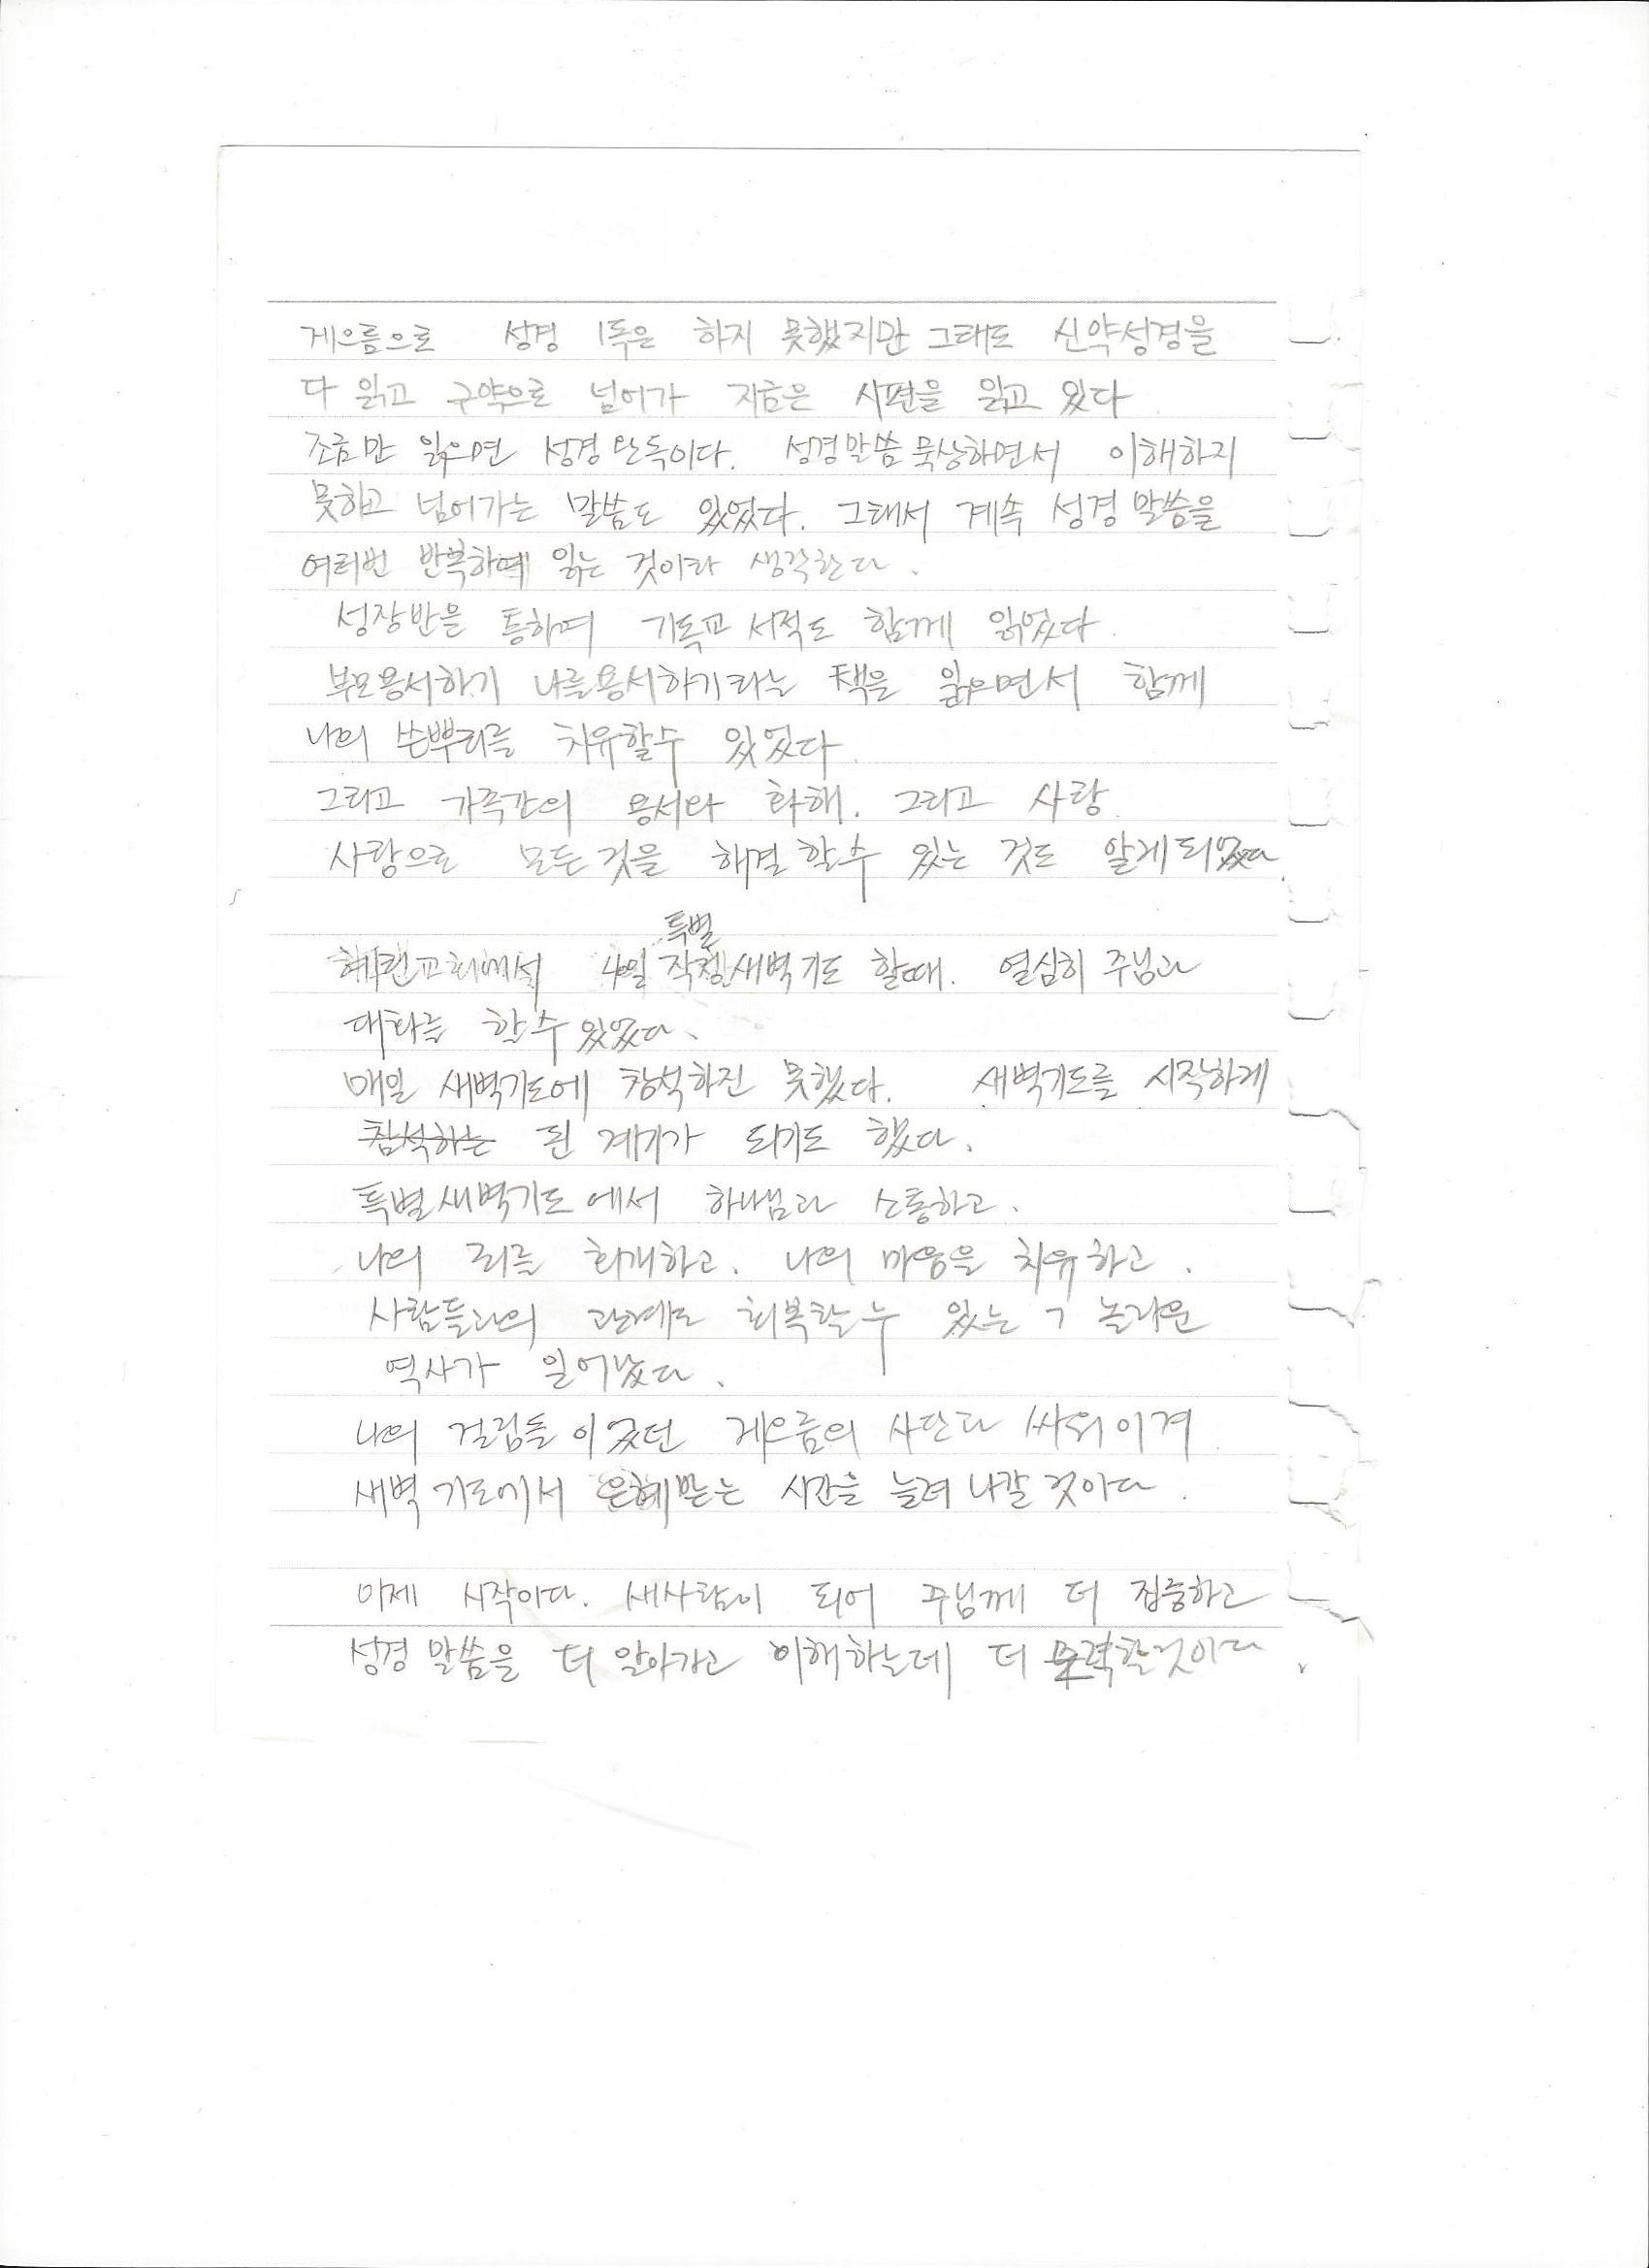 게으름으로 성경 1독은 하지 못했지만 그래도 신약성경을
다 읽고 구약으로 넘어가 지금은 시편을 읽고 있다
조금만 읽으면 성경 완독이다. 성경말씀 묵상하면서 이해하지
못하고 넘어가는 말씀도 있었다. 그래서 계속 성경 말씀을
여러번 반복하여 읽는 것이라 생각한다.
성장반을 통하여 기독교 서적도 함께 읽었다
부모용서하기 나를용서하기라는 책을 읽으면서 함께
나의 쓴뿌리를 치유할수 있었다.
그리고 가족간의 용서와 화해. 그리고 사랑
사랑으로 모든것을 해결할수 있는 것도 알게되었다.
특별
40일 새벽기도 할때. 열심히 주님과
대화를 할수있었다.
매일 새벽기도에 참석하진 못했다. 새벽기도를 시작하게
참석하는 된 계기가 되기도 했다.
특별새벽기도에서 하나님과 소통하고.
나의 죄를 회개하고. 나의 마음을 치유하고.
사람들과의 관계도 회복할수 있는 놀라운
역사가 일어났다.
나의 걸림돌이었던 게으름의 사단과 싸워이겨
새벽기도에서 은혜받는 시간을 늘려나갈 것이다.
이제 시작이다. 새사람이 되어 주님께 더 집중하고
성경 말씀을 더 알아가고 이해하는데 더 노력할것이다.